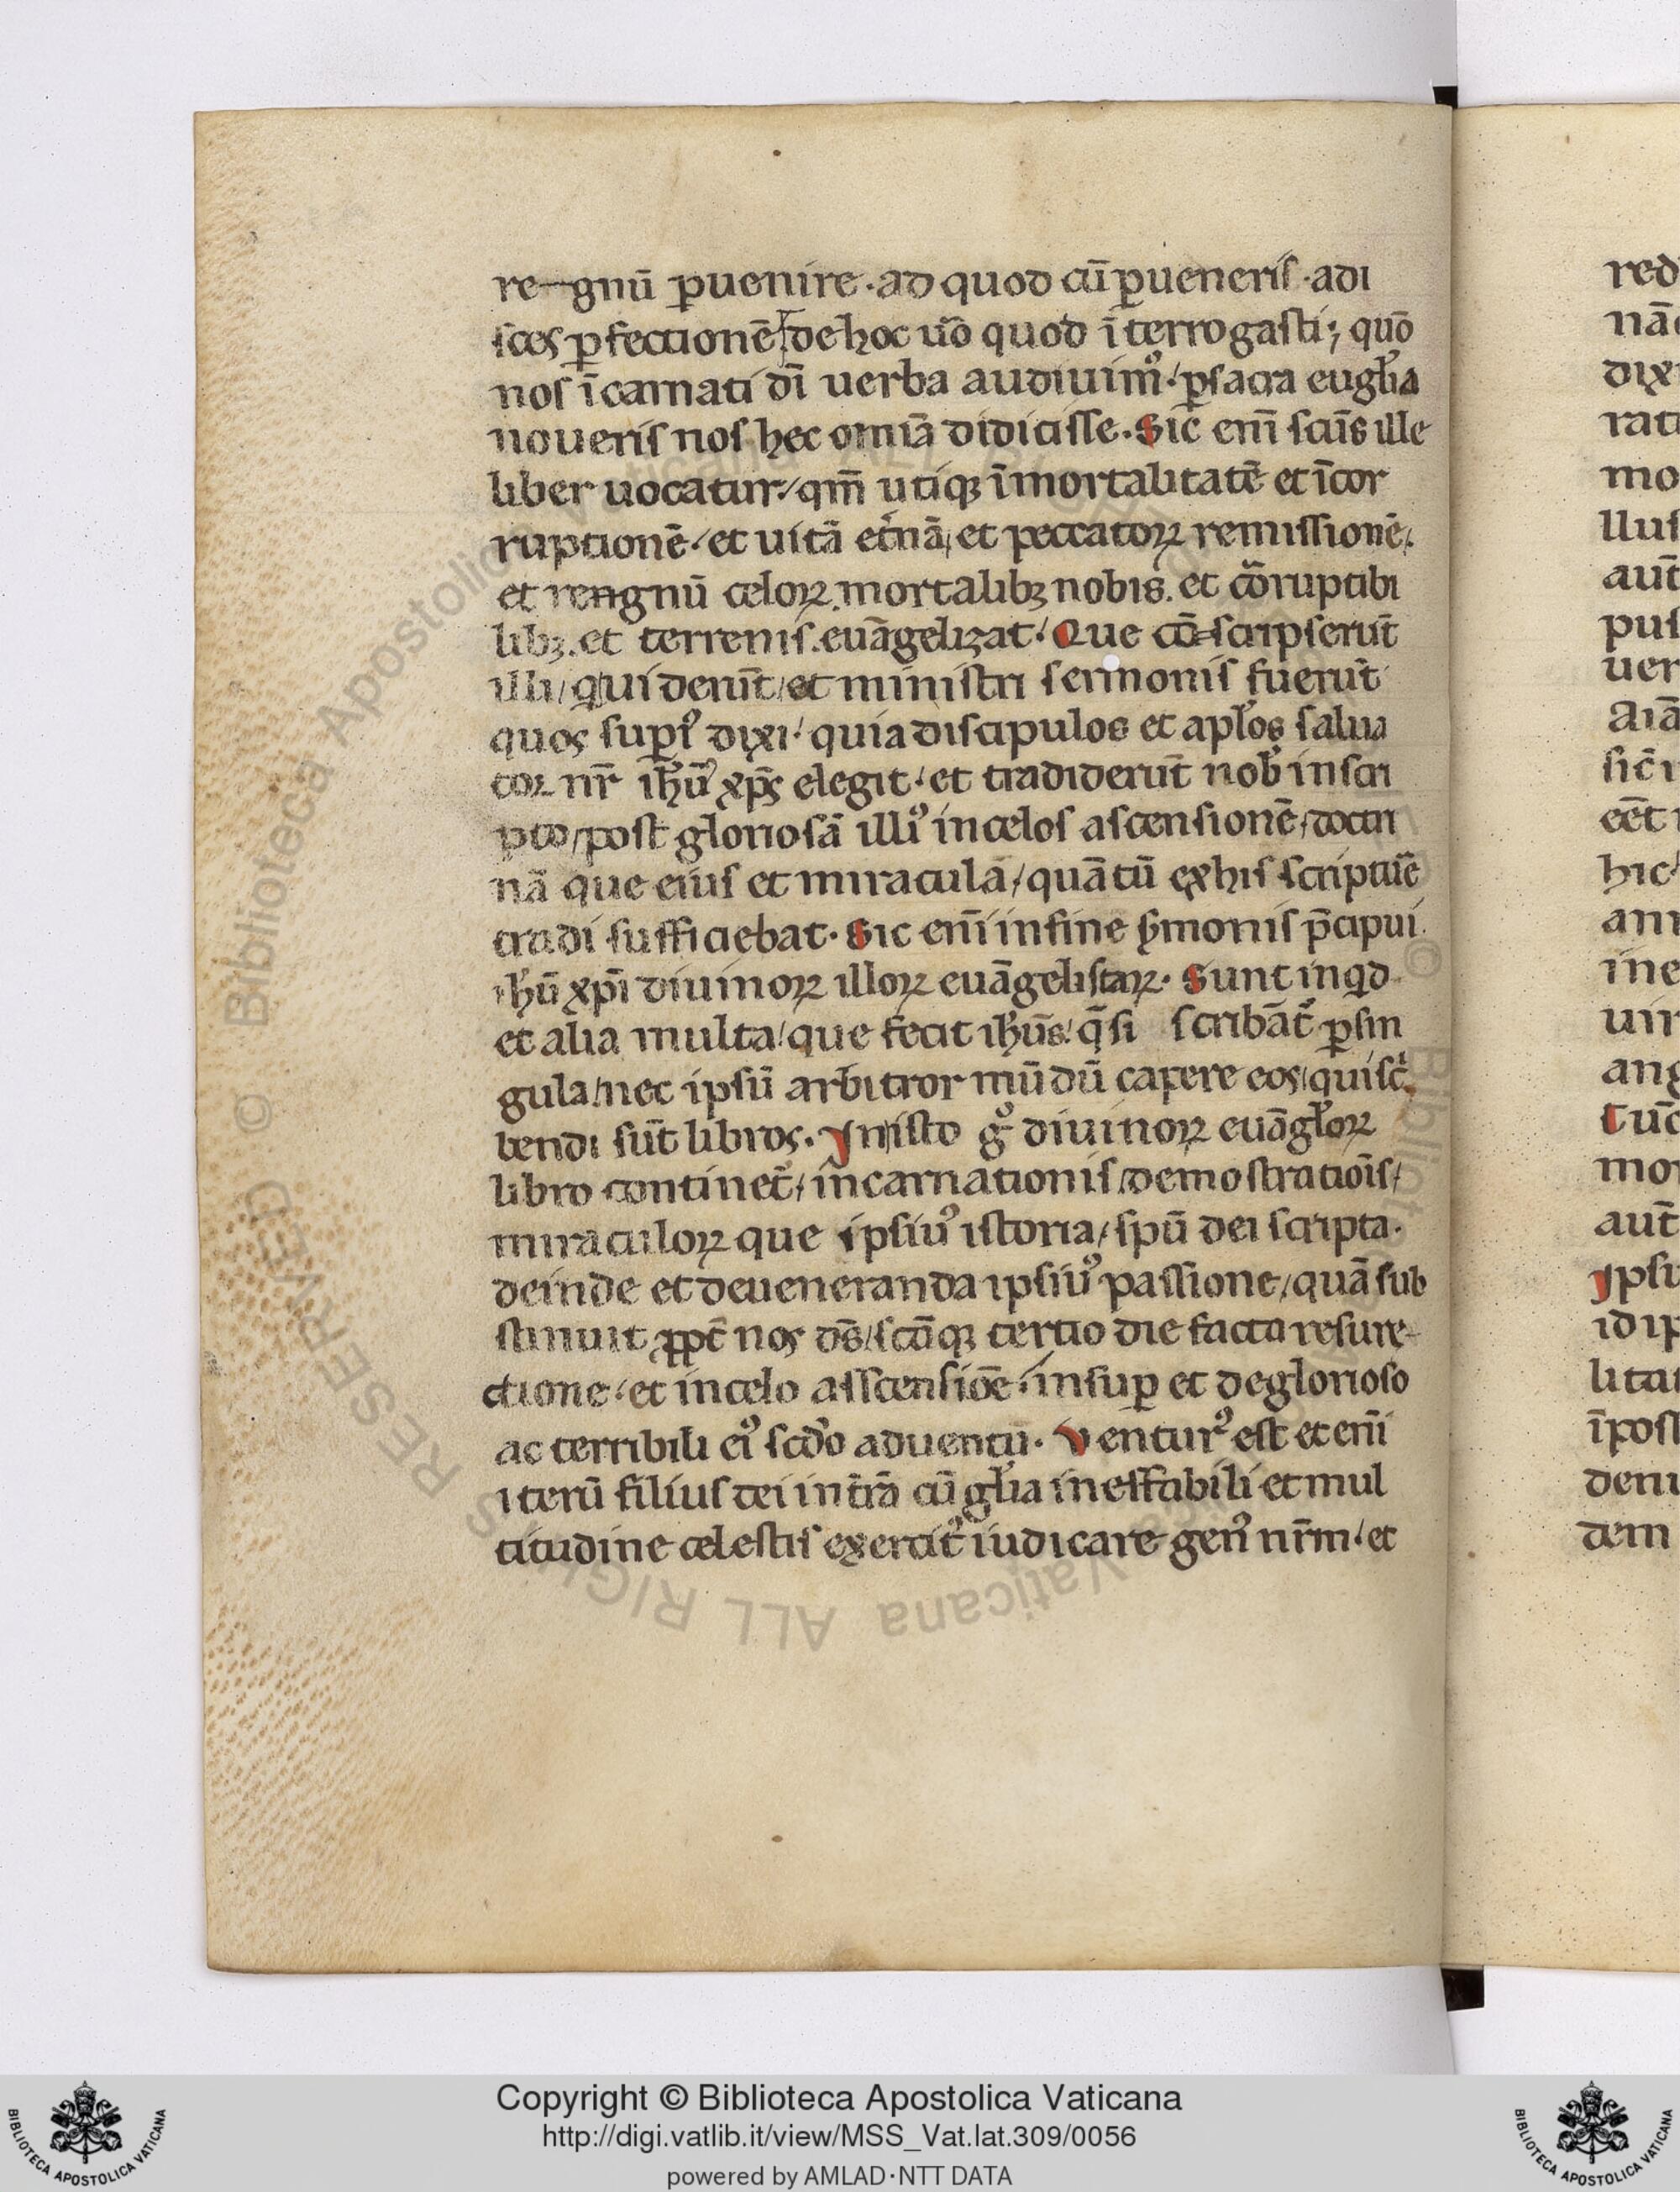 re-gnū ꝑuenire · ad quod cū ꝑueneris · adi
sces ꝑfectionē de hoc ūo quod īterrogasti; quō
nos īcarnati dī uerba audiuim᷒ / ꝑ sacra euglīa
noueris nos hec omīa didicisse. Sic enī scūs ille
liber uocatur / qm̄ utiqꝫ īmortalitatē et īcor
ruptionē / et uitā et̄nā / et peccatoꝝ remissionē /
et rengnū celoꝝ mortalibꝫ nobis. et cōruptibi
libꝫ. et terrenis. euāgelizat / Que cō=scripserūt
illi / qui derūt / et ministri sermonis fuerūt
quos supi᷒ dixi / quia discipulos et aplōs salua
tor nr̄ ih̄u xp̄s elegit / et tradiderūt nob̄ in scri
pto / post gloriosā illi᷒ in celos ascensionē / doctri
nā que eius et miracula / quātū ex his scriptur̄e
tradi sufficiebat · Sic enī in fine s̄monis p̄cipui
ih̄u xp̄i diuinoꝝ illoꝝ euāgelistaꝝ · Sunt inqd
et alia multa / que fecit ih̄us / q̄ si scribāt̄ ꝑ sin
gula / nec ipsū arbitror mūdū capere eos / qui sc̄
bendi sūt libros. In isto g᷒ diuinoꝝ euāgl̄oꝝ
libro continet̄ / incarnationis / demostratiōis /
miraculoꝝ que ipsiu᷒ istoria / spū dei scripta ·
deinde et de ueneranda ipsiu᷒ passione / quā sub
stinuit ꝓpt̄ nos dn̄s / scāqꝫ tertio die facta resure-
ctione / et in celo asscensiōe / insuꝑ et de glorioso
ac terribili ei᷒ scd̄o aduentu · Ventur᷒ est et enī
iterū filius dei in t̄rā cū gl̄ia ineffabili et mul
titudine celestis exercit᷒ iudicare gen᷒ nr̄m / et
red
dixi
mo
hic
ani
ine
dem
© Biblioteca Apostolica Vaticana ALL RIGHTS RESERVED
Copyright © Biblioteca Apostolica Vaticana
http://digi.vatlib.it/view/MSS_Vat.lat.309/0056
powered by AMLAD·NTT DATA
BIBLIOTECA APOSTOLICA VATICANA
BIBLIOTECA APOSTOLICA VATICANA